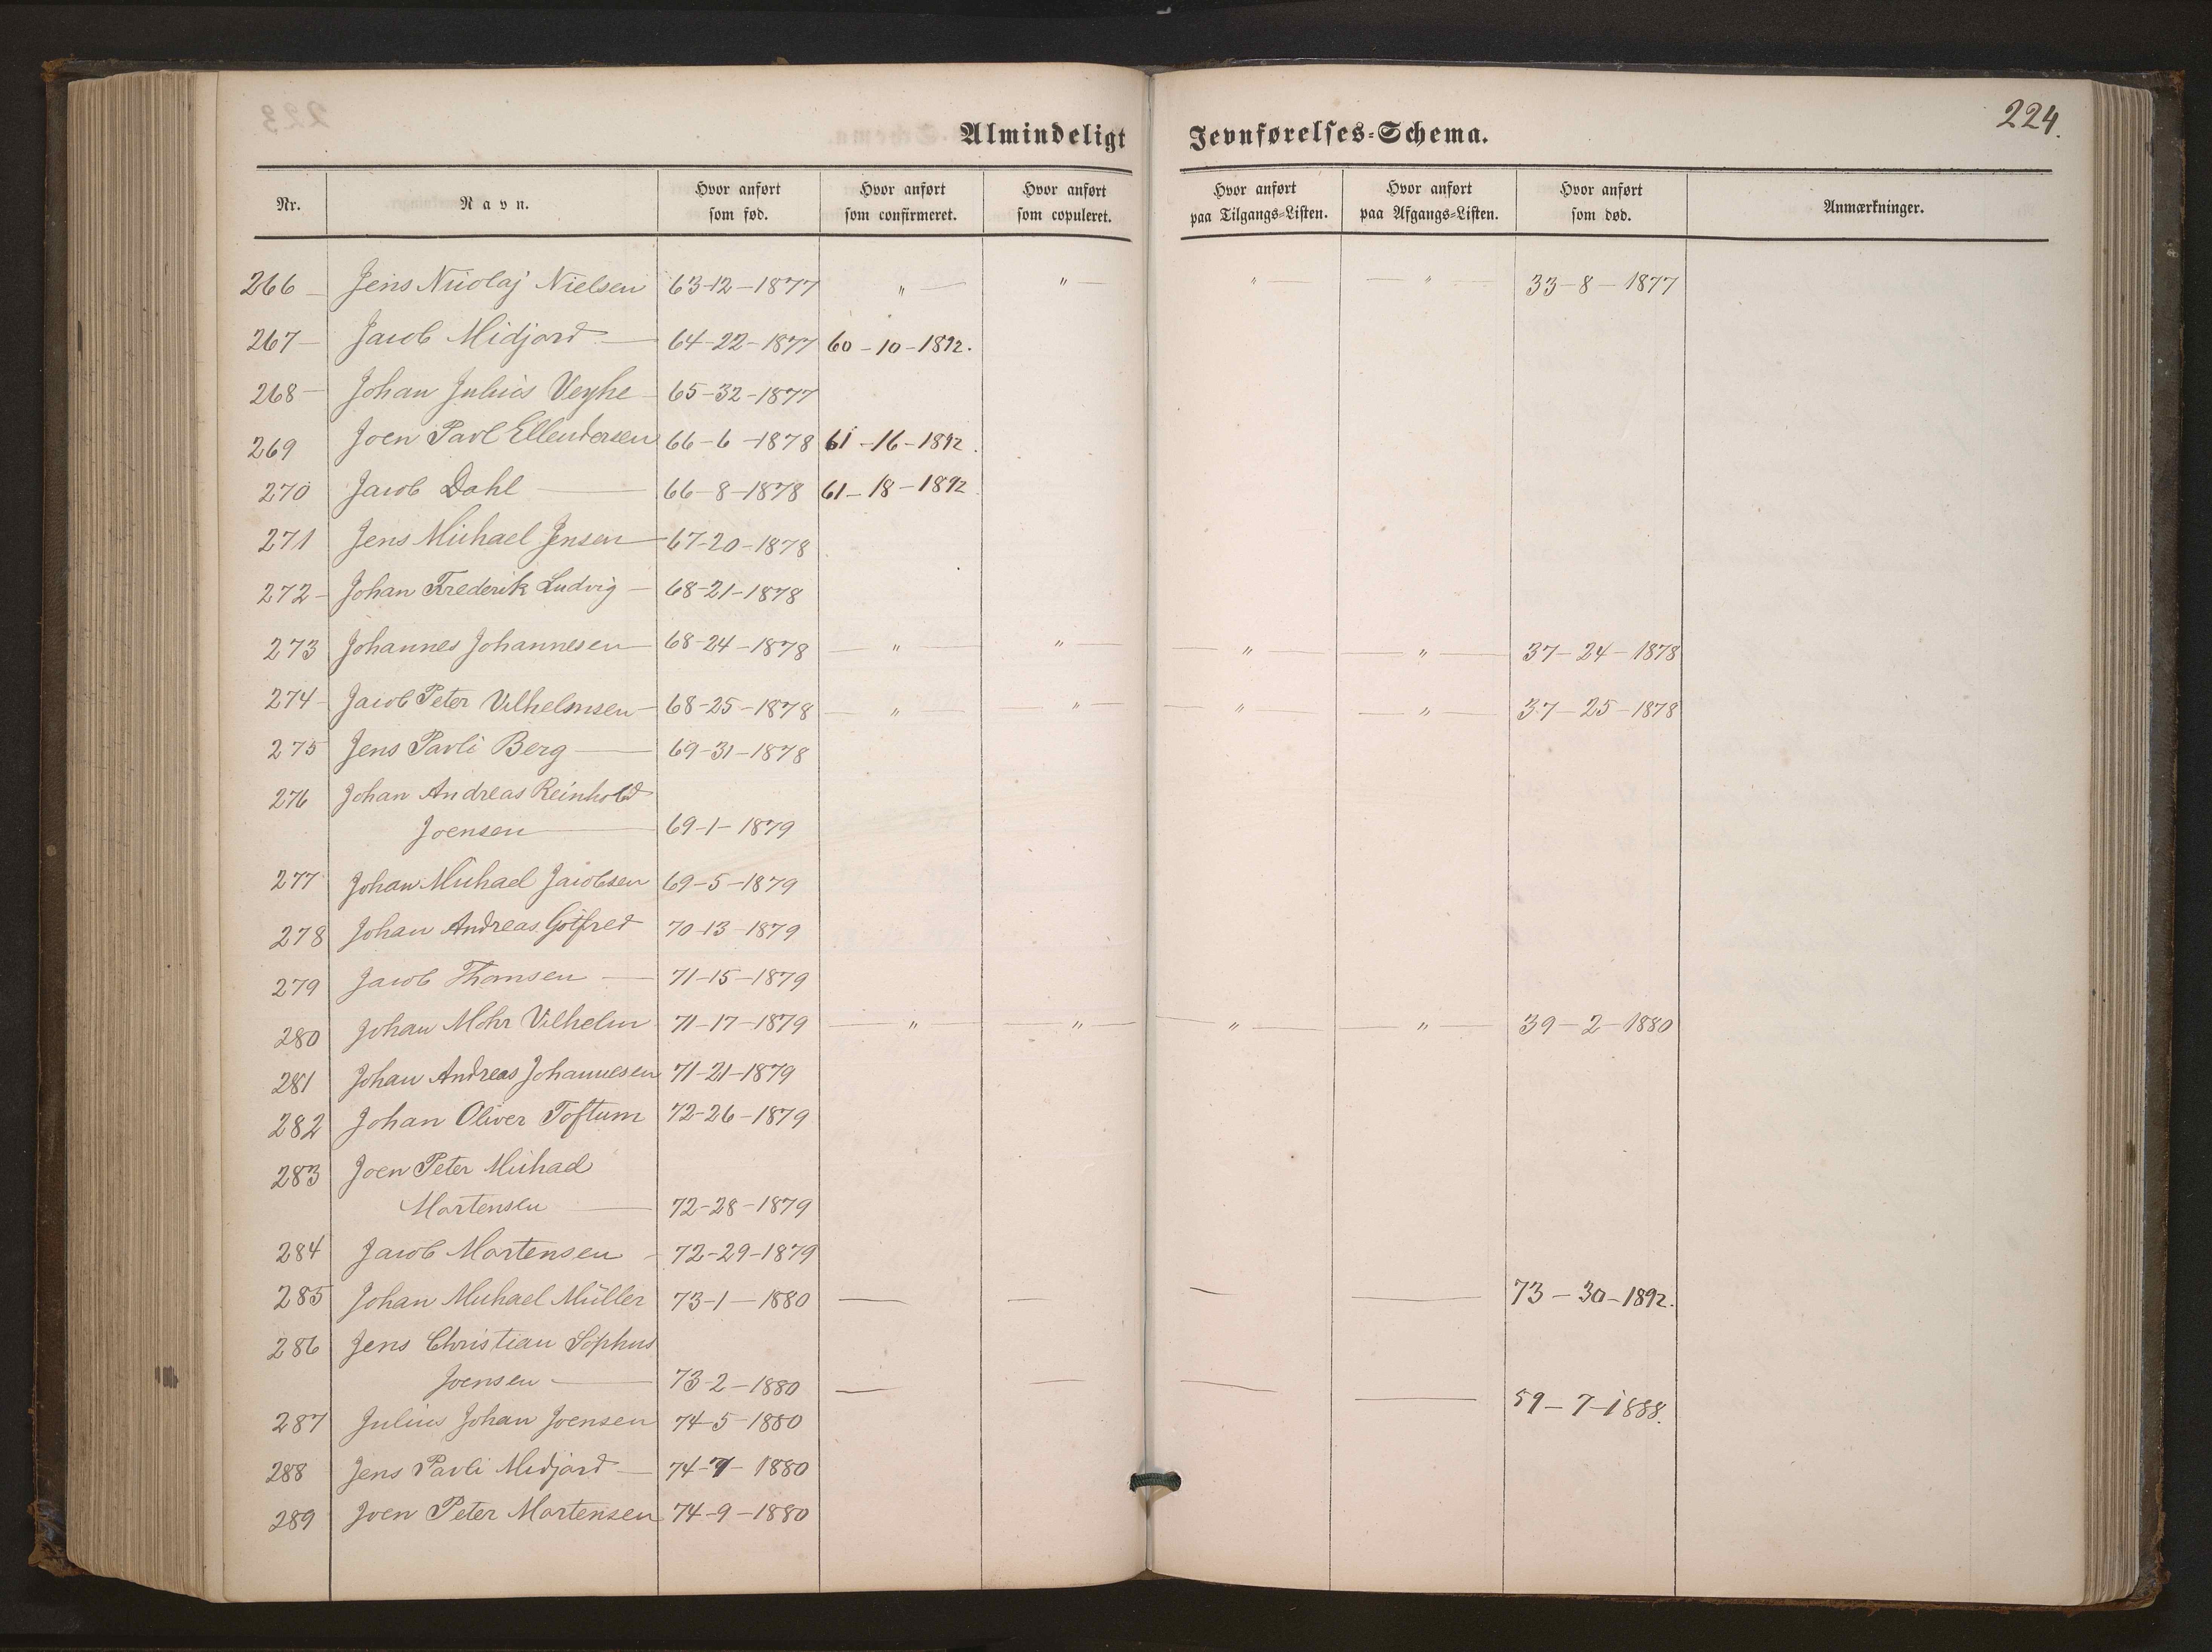 224.
Almindeligt Jevnførelses-Schema.
Nr. Navn. Hvor anført som fød. Hvor anført som confirmeret. Hvor anført som copuleret. Hvor anført paa Tilgangs-Listen. Hvor anført paa Afgangs-Listen. Hvor anført som død. Anmærkninger.
266 – Jens Nicolaj Nielsen 63-12-1877 " — " — " — — " — 33-8-1877
267 – Jacob Midjord — 64-22-1877 60-10-1892.
268 – Johan Julius Veyhe 65-32-1877
269 Joen Pavl Ellendersen 66-6-1878 61-16-1892.
270 Jacob Dahl — 66-8-1878 61-18-1892
271 Jens Michael Jensen — 67-20-1878
272 – Johan Frederik Ludvig — 68-21-1878
273 Johannes Johannesen — 68-24-1878 — " — " — — " — — " — 37-24-1878
274 – Jacob Peter Vilhelmsen — 68-25-1878 — " — " — — " — — " — 37-25-1878
275 Jens Pavli Berg — 69-31-1878
276 Johan Andreas Reinhold
Joensen — 69-1-1879
277 Johan Michael Jacobsen 69-5-1879
278 Johan Andreas Gotfred 70-13-1879
279 Jacob Thomsen — 71-15-1879
280 Johan Mohr Vilhelm 71-17-1879 — " — — " — — " — — " — 39-2-1880
281 Johan Andreas Johannesen 71-21-1879
282 Johan Oliver Toftum 72-26-1879
283 Joen Peter Michael
Mortensen — 72-28-1879
284 Jacob Mortensen – 72-29-1879
285 Johan Michael Müller 73-1-1880 — — — — 73-30-1892.
286 Jens Christian Sophus
Joensen — 73-2-1880 — — — — 59-7-1888.
287 Julius Johan Joensen 74-5-1880
288 Jens Pavli Midjord — 74-7-1880
289 Joen Peter Mortensen 74-9-1880